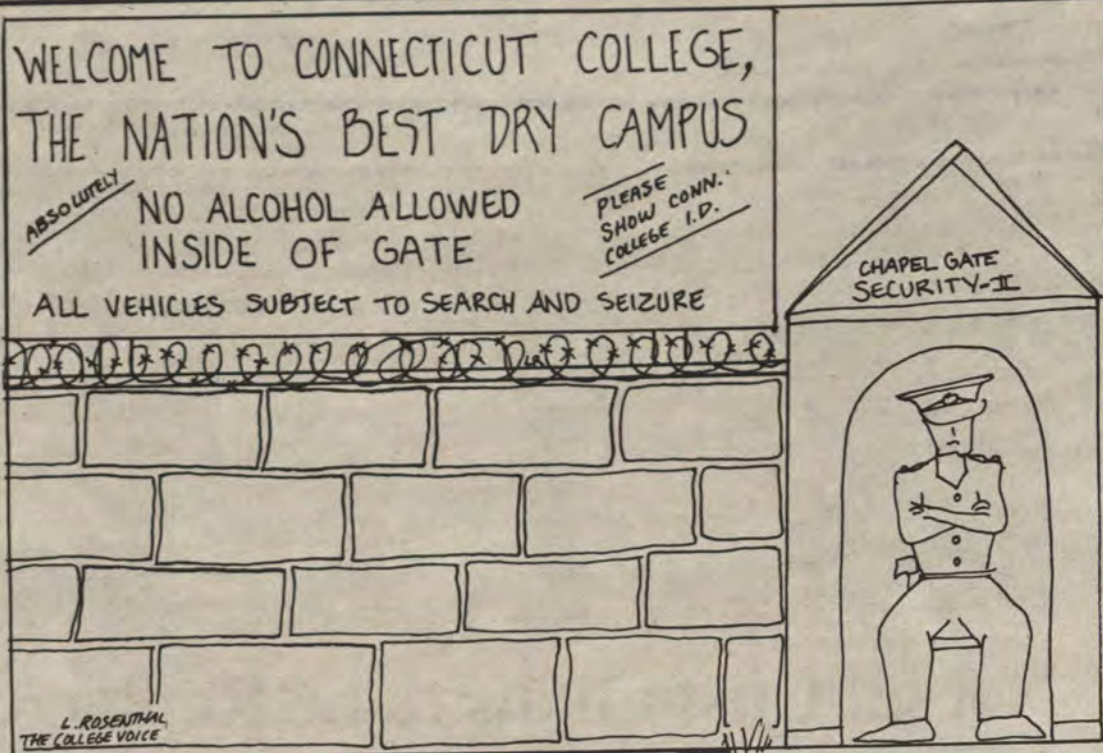 WELCOME TO CONNECTICUT COLLEGE,
THE NATION'S BEST DRY CAMPUS
ABSOLUTELY
NO ALCOHOL ALLOWED
INSIDE OF GATE
PLEASE
SHOW CONN.
COLLEGE I.D.
ALL VEHICLES SUBJECT TO SEARCH AND SEIZURE
CHAPEL GATE
SECURITY-II
LR
L. ROSENTHAL
THE COLLEGE VOICE